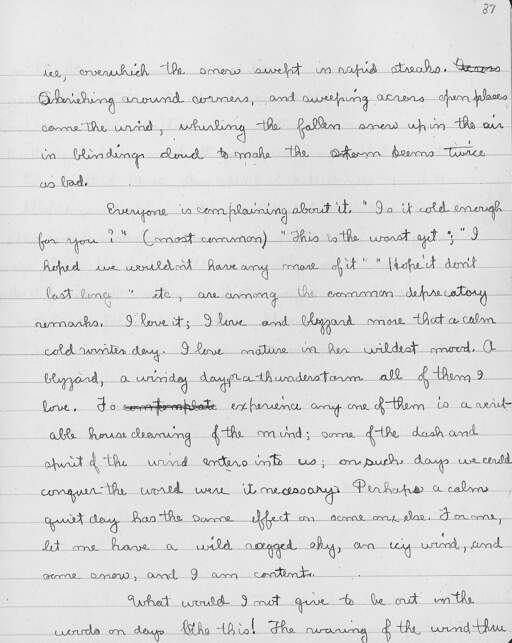 37
ice, overwhich the snow swept in rapid streaks.
Shrieching around corners, and sweeping across open places
came the wind, whurling the fallen snow up in the air
in blindings cloud to make the storm seems twice
as bad.
Everyone is complaining about it. "Is it cold enough
for you?" (most common) "This is the worst yet"; "I
hoped we wouldn't have any more of it" "Hope it don't
last long" etc, are among the common deprecatory
remarks. I love it; I love and blizzard more that a calm
cold winter day. I love nature in her wildest mood. A
blizzard, a windy day, or a thunderstorm all of them I
love. To contemplate experience any one of them is a verit-
able housecleaning of the mind; some of the dash and
spirit of the wind enters into us; on such days we could
conquer the world were it necessary. Perhaps a calm
quiet day has the same effect on some one else. For me,
let me have a wild ragged sky, an icy wind, and
some snow, and I am content.
What would I not give to be out in the
woods on days like this! The roaring of the wind thru